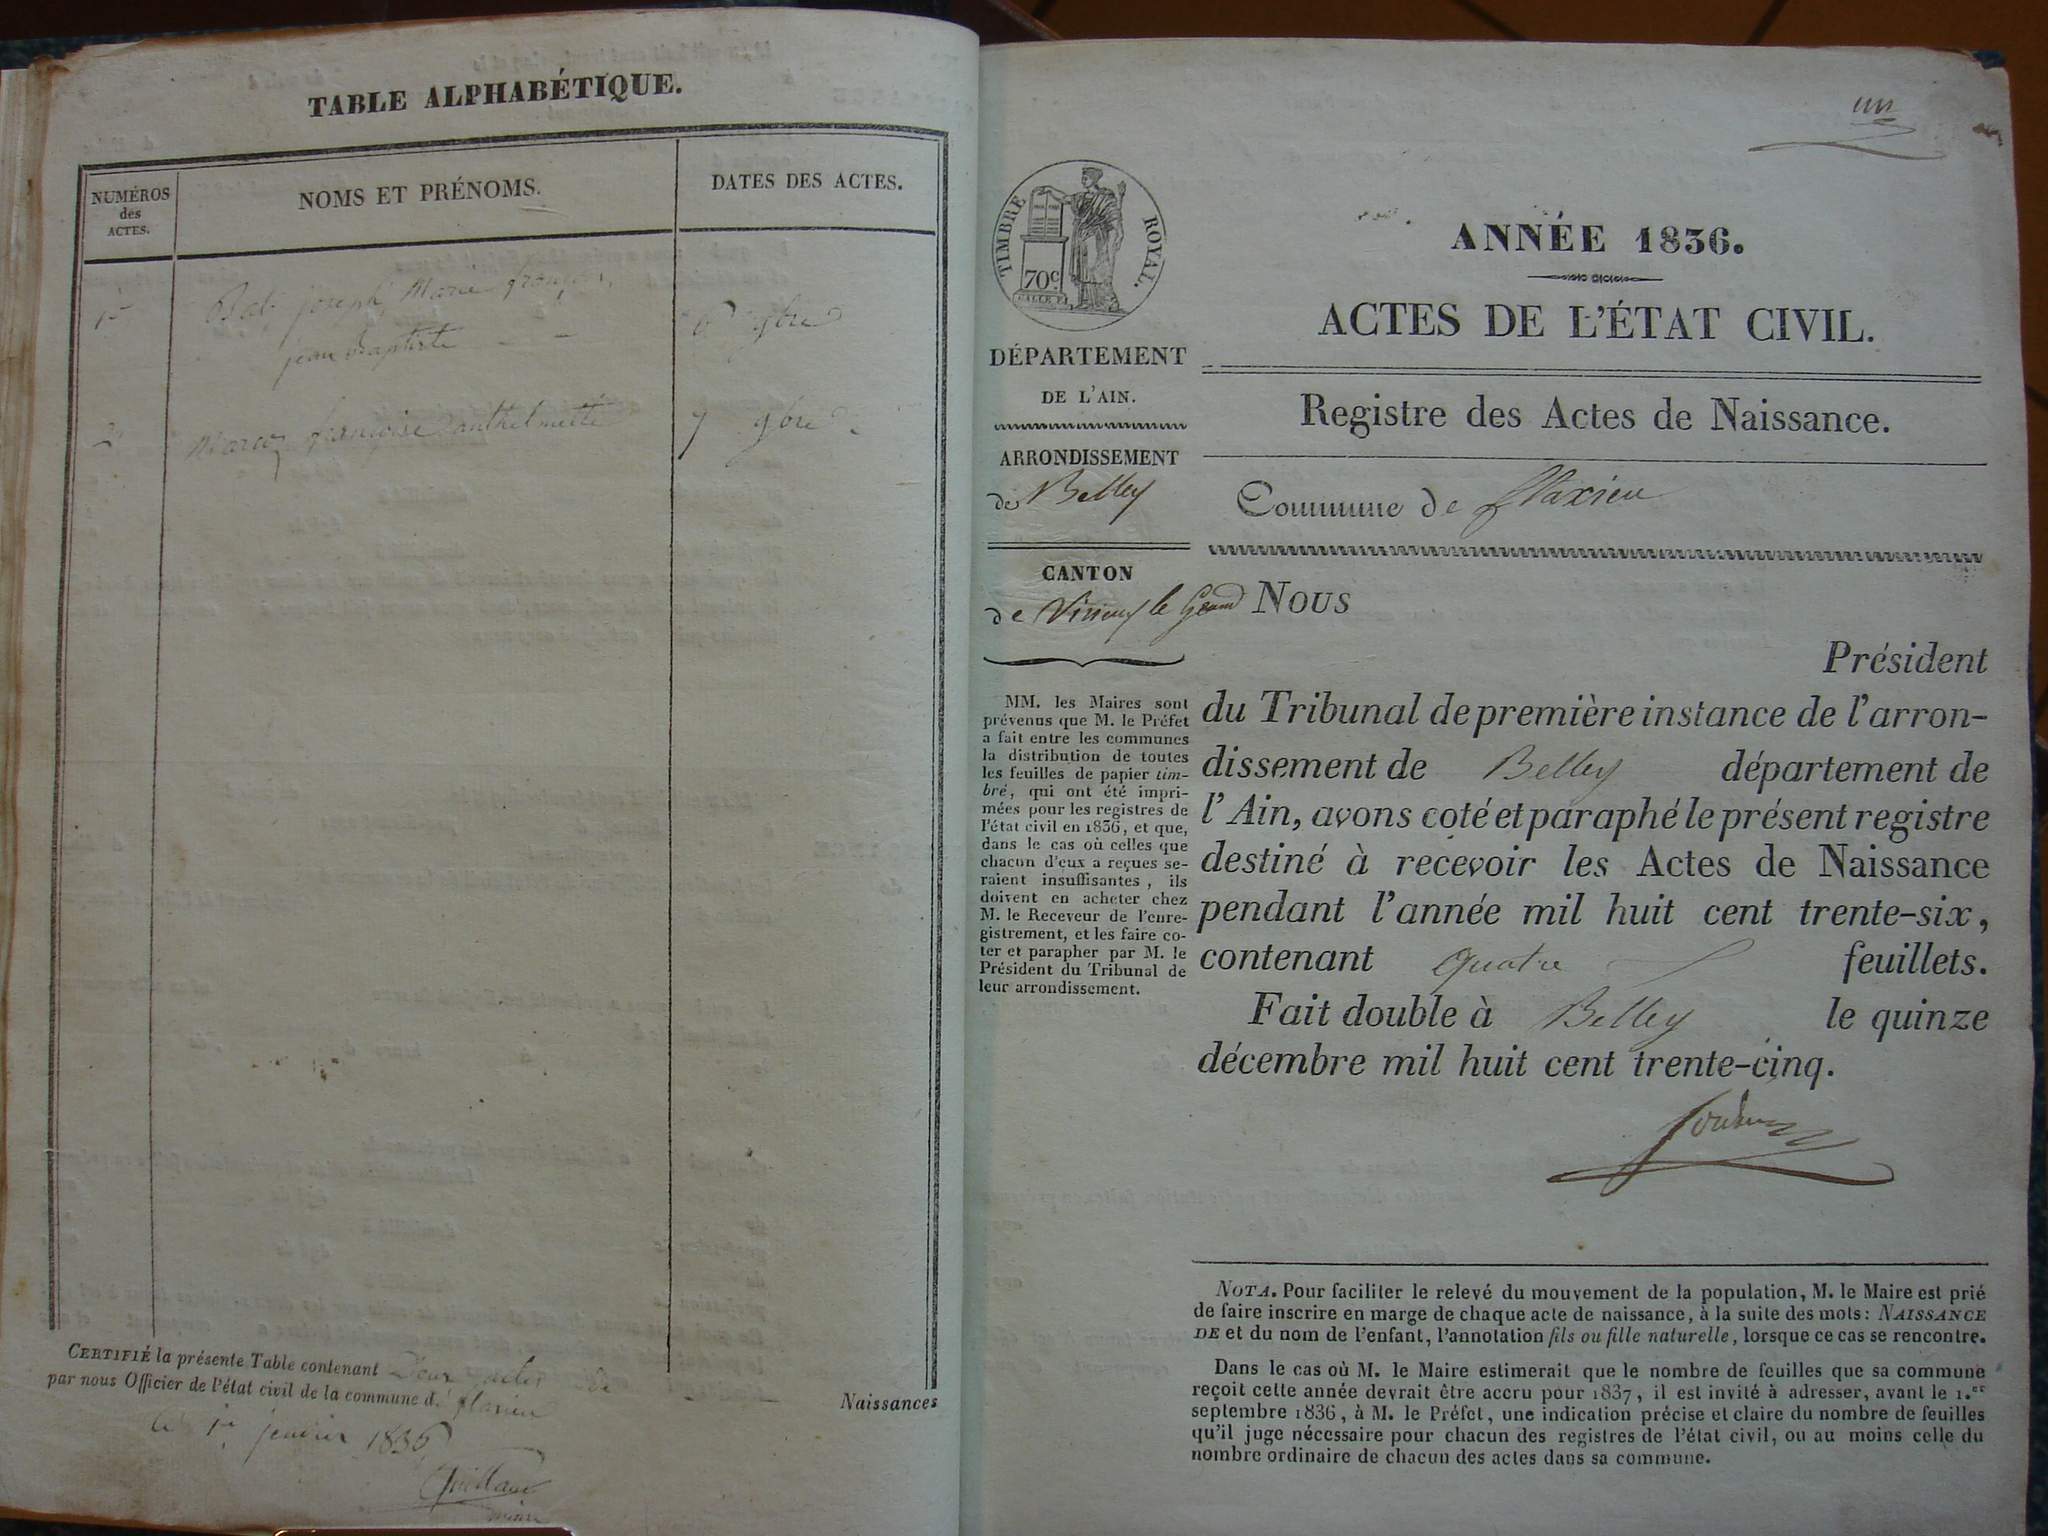 TABLE ALPHABÉTIQUE.
NUMÉROS
des
ACTES.
NOMS ET PRÉNOMS.
DATES DES ACTES.
joseph Marie
jean Baptiste
9bre
2
françoise
7 9bre
CERTIFIÉ la présente Table contenant Deux actes de Naissances
par nous Officier de l'état civil de la commune d. flaxieu
Le 1er janvier 1836
maire
un
TIMBRE ROYAL.
70c
DÉPARTEMENT
DE L'AIN.
ARRONDISSEMENT
de Belley
CANTON
de Virieux le Grand
MM. les Maires sont
prévenus que M. le Préfet
a fait entre les communes
la distribution de toutes
les feuilles de papier tim-
bré, qui ont été impri-
mées pour les registres de
l'état civil en 1836, et que,
dans le cas où celles que
chacun d'eux a reçues se-
raient insuffisantes, ils
doivent en acheter chez
M. le Receveur de l'enre-
gistrement, et les faire co-
ter et parapher par M. le
Président du Tribunal de
leur arrondissement.
ANNÉE 1836.
ACTES DE L'ÉTAT CIVIL.
Registre des Actes de Naissance.
Commune de flaxieu
NOUS
Président
du Tribunal de première instance de l'arron-
dissement de Belley département de
l'Ain, avons coté et paraphé le présent registre
destiné à recevoir les Actes de Naissance
pendant l'année mil huit cent trente-six,
contenant quatre feuillets.
Fait double à Belley le quinze
décembre mil huit cent trente-cinq.
NOTA. Pour faciliter le relevé du mouvement de la population, M. le Maire est prié
de faire inscrire en marge de chaque acte de naissance, à la suite des mots: NAISSANCE
DE et du nom de l'enfant, l'annotation fils ou fille naturelle, lorsque ce cas se rencontre.
Dans le cas où M. le Maire estimerait que le nombre de feuilles que sa commune
reçoit cette année devrait être accru pour 1837, il est invité à adresser, avant le 1.er
septembre 1836, à M. le Préfet, une indication précise et claire du nombre de feuilles
qu'il juge nécessaire pour chacun des registres de l'état civil, ou au moins celle du
nombre ordinaire de chacun des actes dans sa commune.